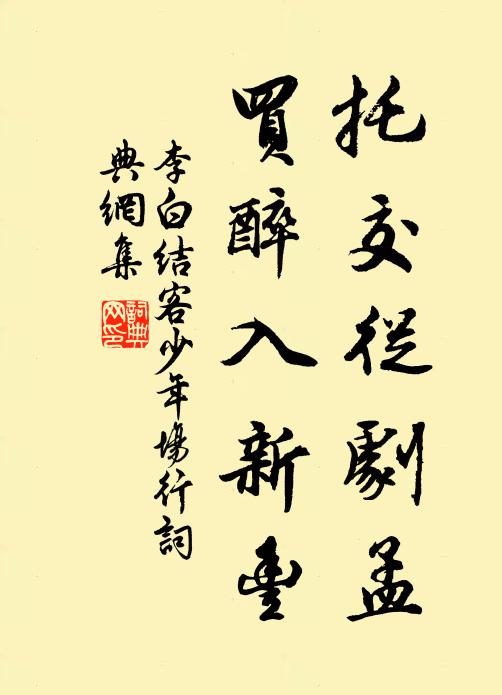 托交從劇孟
買醉入新豐
李白結客少年場行詞
典網集
詞典
网印